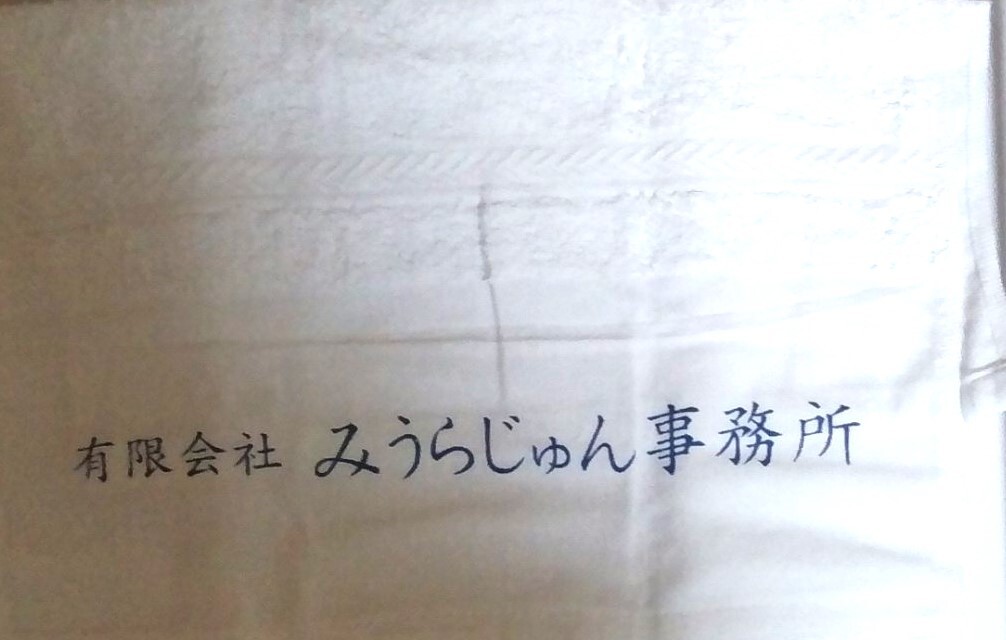 有限会社 みうらじゅん事務所